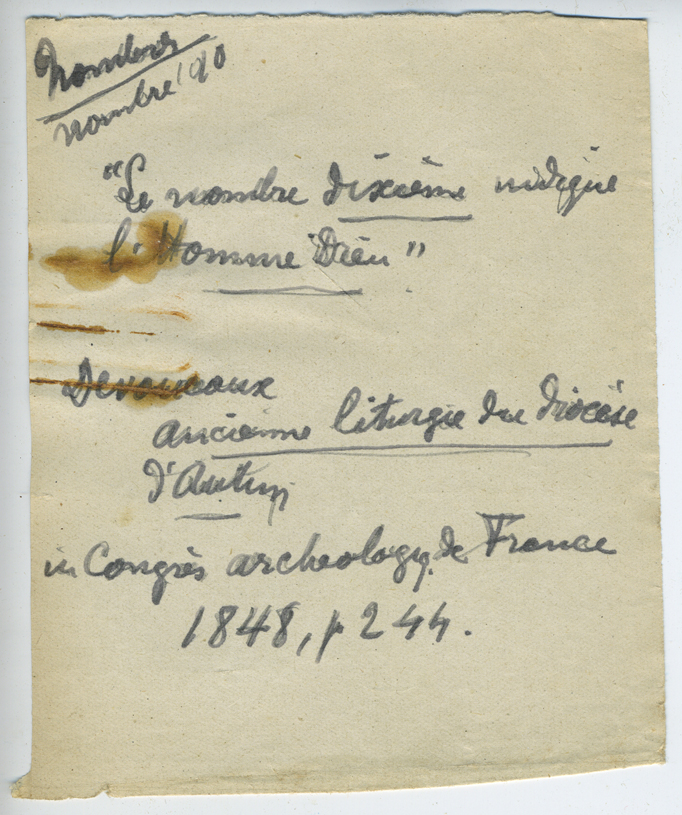 Nombres
nombre 10
"Le nombre dixième indique
l'Homme Dieu"
Devoucoux
ancienne liturgie du diocèse
d'Autun
in Congrès archeology. de France
1848, p 244.